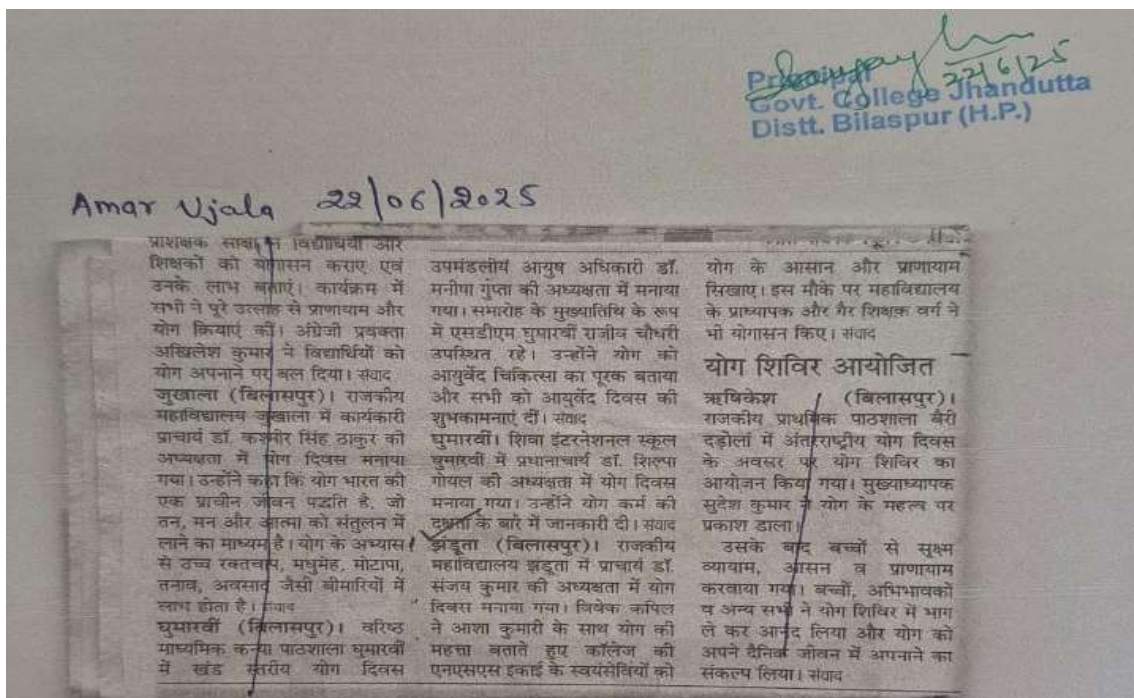 Principal
22/6/25
Govt. College Jhandutta
Distt. Bilaspur (H.P.)
Amar Ujala 22/06/2025
विद्यार्थियों और
शिक्षकों को योगासन कराए एवं
उनके लाभ बताएं। कार्यक्रम में
सभी ने पूरे उत्साह से प्राणायाम और
योग क्रियाएं कीं। अंग्रेजी प्रवक्ता
अखिलेश कुमार ने विद्यार्थियों को
योग अपनाने पर बल दिया। संवाद
जुखाला (बिलासपुर)। राजकीय
महाविद्यालय जुखाला में कार्यकारी
प्राचार्य डॉ. कश्मीर सिंह ठाकुर की
अध्यक्षता में योग दिवस मनाया
गया। उन्होंने कहा कि योग भारत की
एक प्राचीन जीवन पद्धति है, जो
तन, मन और आत्मा को संतुलन में
लाने का माध्यम है। योग के अभ्यास
से उच्च रक्तचाप, मधुमेह, मोटापा,
तनाव, अवसाद जैसी बीमारियों में
लाभ होता है। संवाद
घुमारवीं (बिलासपुर)। वरिष्ठ
माध्यमिक कन्या पाठशाला घुमारवीं
में खंड स्तरीय योग दिवस
उपमंडलीय आयुष अधिकारी डॉ.
मनीषा गुप्ता की अध्यक्षता में मनाया
गया। समारोह के मुख्यातिथि के रूप
में एसडीएम घुमारवीं राजीव चौधरी
उपस्थित रहे। उन्होंने योग को
आयुर्वेद चिकित्सा का पूरक बताया
और सभी को आयुर्वेद दिवस की
शुभकामनाएं दीं। संवाद
घुमारवीं। शिवा इंटरनेशनल स्कूल
घुमारवीं में प्रधानाचार्य डॉ. शिल्पा
गोयल की अध्यक्षता में योग दिवस
मनाया गया। उन्होंने योग कर्म की
दक्षता के बारे में जानकारी दी। संवाद
झंडूता (बिलासपुर)। राजकीय
महाविद्यालय झंडूता में प्राचार्य डॉ.
संजय कुमार की अध्यक्षता में योग
दिवस मनाया गया। विवेक कपिल
ने आशा कुमारी के साथ योग की
महत्ता बताते हुए कॉलेज की
एनएसएस इकाई के स्वयंसेवियों को
योग के आसान और प्राणायाम
सिखाए। इस मौके पर महाविद्यालय
के प्राध्यापक और गैर शिक्षक वर्ग ने
भी योगासन किए। संवाद
योग शिविर आयोजित
ऋषिकेश (बिलासपुर)।
राजकीय प्राथमिक पाठशाला बैरी
दड़ोलां में अंतरराष्ट्रीय योग दिवस
के अवसर पर योग शिविर का
आयोजन किया गया। मुख्याध्यापक
सुदेश कुमार ने योग के महत्व पर
प्रकाश डाला।
उसके बाद बच्चों से सूक्ष्म
व्यायाम, आसन व प्राणायाम
करवाया गया। बच्चों, अभिभावकों
व अन्य सभी ने योग शिविर में भाग
ले कर आनंद लिया और योग को
अपने दैनिक जीवन में अपनाने का
संकल्प लिया। संवाद